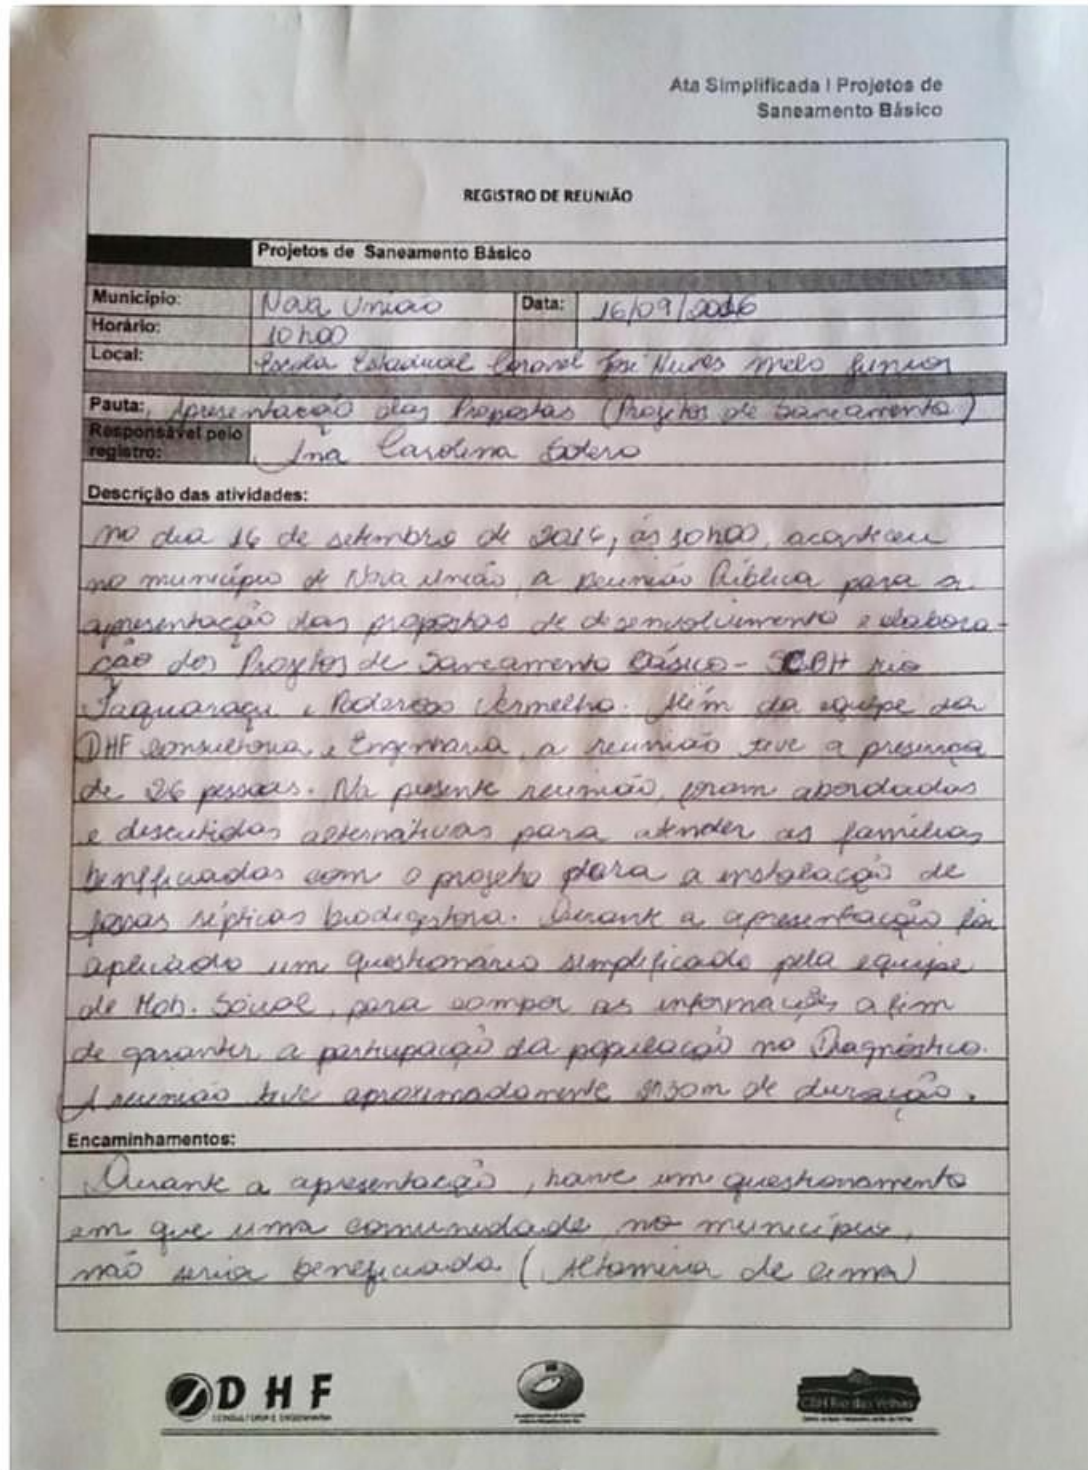 Ata Simplificada | Projetos de
Saneamento Básico
REGISTRO DE REUNIÃO
Projetos de Saneamento Básico
Município: Nova União Data: 16/09/2016
Horário: 10h00
Local: Escola Estadual Coronel José Nunes Melo Junior
Pauta: Apresentação das Propostas (Projetos de Saneamento)
Responsável pelo
registro: Ana Carolina Sotero
Descrição das atividades:
No dia 16 de setembro de 2016, às 10h00, aconteceu
no município de Nova União, a Reunião Pública para a
apresentação das propostas de desenvolvimento e elabora-
ção dos Projetos de Saneamento Básico - SCBH rio
Taquaraçu e Poderoso Vermelho. Além da equipe da
DHF Consultoria e Engenharia, a reunião teve a presença
de 26 pessoas. Na presente reunião, foram abordadas
e discutidas alternativas para atender as famílias
beneficiadas com o projeto para a instalação de
fossas sépticas biodigestora. Durante a apresentação foi
aplicado um questionário simplificado pela equipe
de Mob. Social, para compor as informações a fim
de garantir a participação da população no Diagnóstico.
A reunião teve aproximadamente de duração.
Encaminhamentos:
Durante a apresentação, houve um questionamento
em que uma comunidade, no município,
não seria beneficiada (Altamira de cima)
DHF
CONSULTORIA E ENGENHARIA
CBH Rio das Velhas